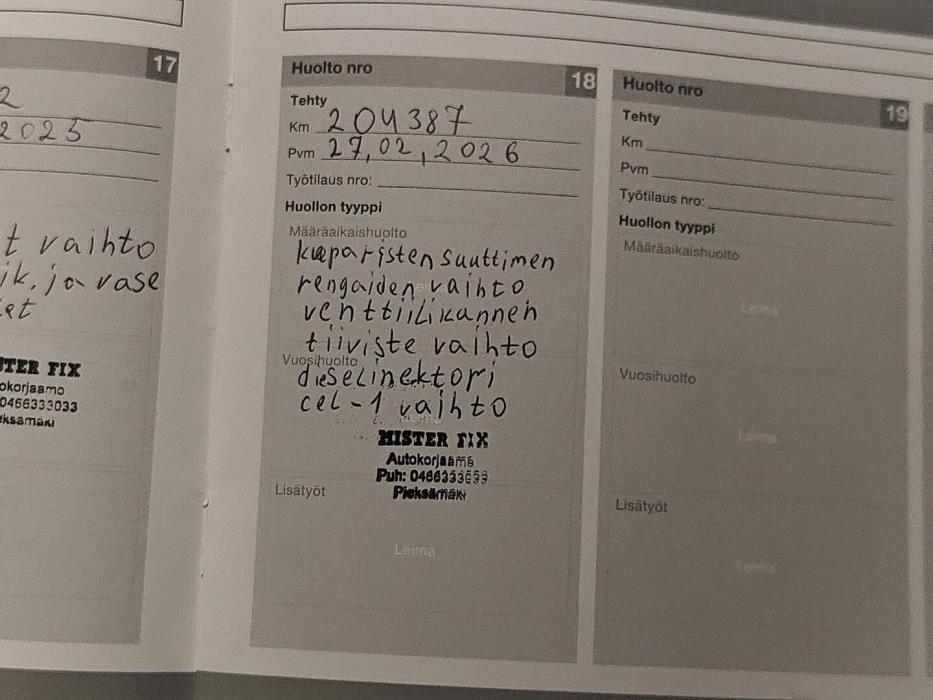 17
2
2025
t vaihto
ik. ja vase
et
STER FIX
okorjaamo
0466333033
eksämäki
Huolto nro
18
Tehty
Km 204387
Pvm 27.02.2026
Työtilaus nro:
Huollon tyyppi
Määräaikaishuolto
kuparisten suuttimen
rengaiden vaihto
venttiilikannen
tiiviste vaihto
Vuosihuolto
dieselinektori
cel-1 vaihto
MISTER FIX
Autokorjaamo
Puh: 0466333033
Pieksämäki
Lisätyöt
Leima
Huolto nro
19
Tehty
Km
Pvm
Työtilaus nro:
Huollon tyyppi
Määräaikaishuolto
Leima
Vuosihuolto
Leima
Lisätyöt
Leima